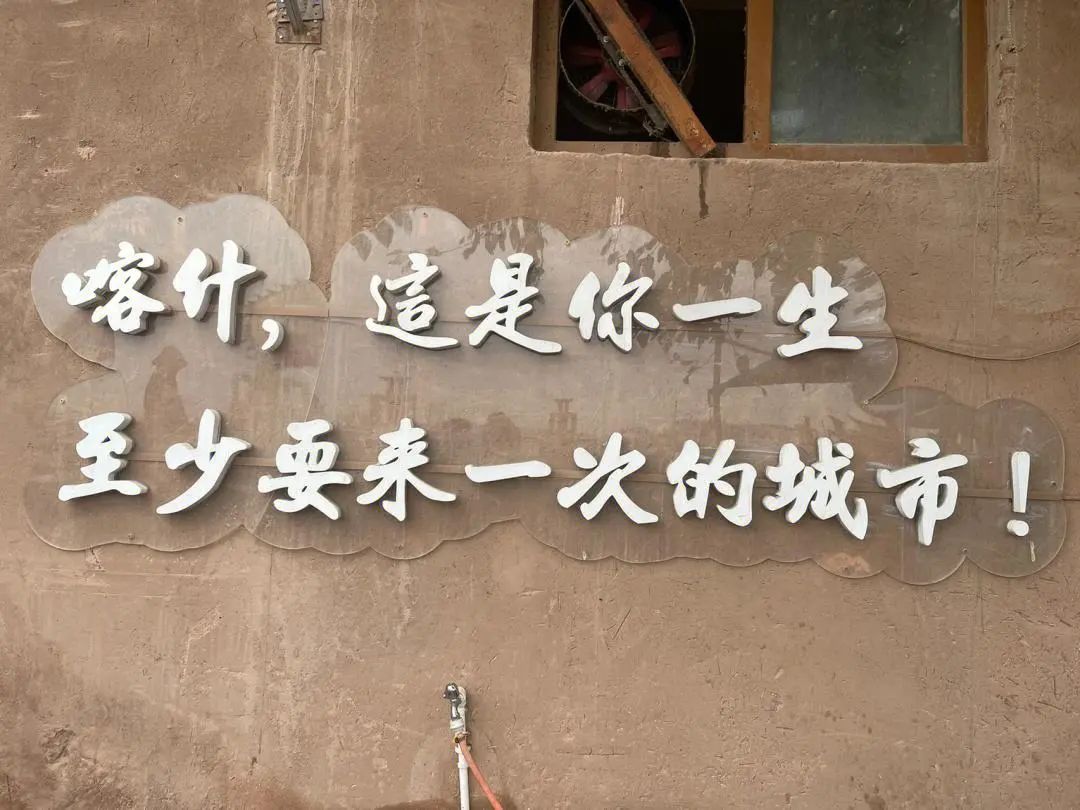 喀什,這是你一生
至少要来一次的城市!